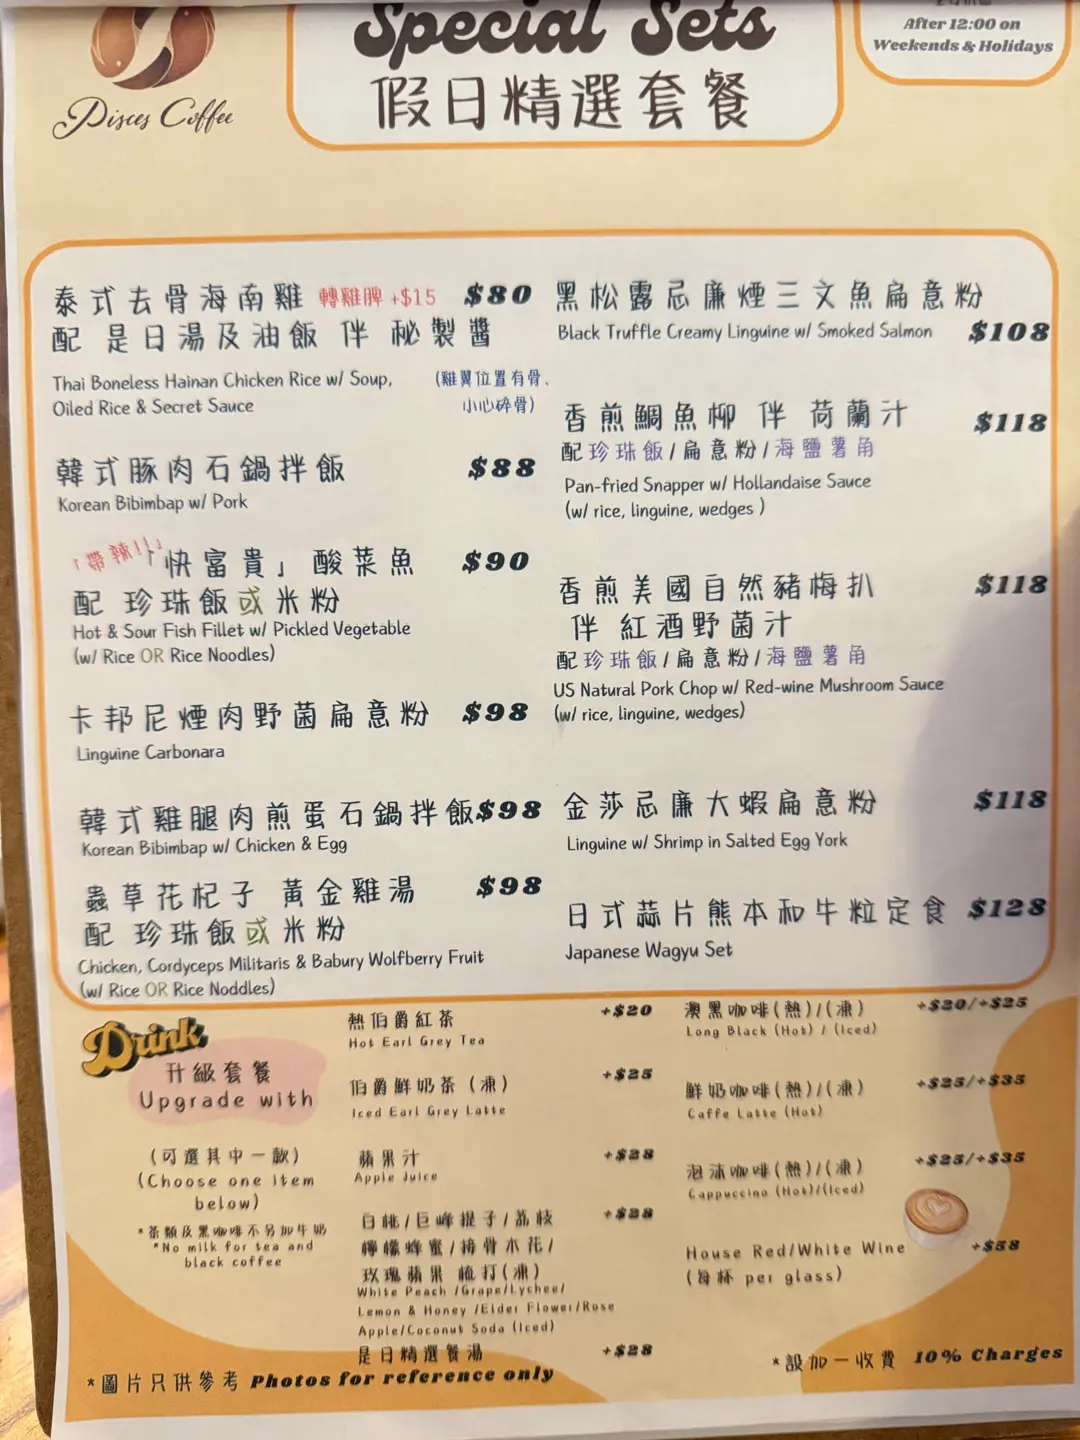 Special Sets
假日精選套餐
Disces Coffee
After 12:00 on
Weekends & Holidays
泰式去骨海南雞 轉雞脾 +$15 $80
配 是日湯及油飯 伴 秘製醬
Thai Boneless Hainan Chicken Rice w/ Soup,
Oiled Rice & Secret Sauce
(雞翼位置有骨、
小心碎骨)
韓式豚肉石鍋拌飯 $88
Korean Bibimbap w/ Pork
「帶辣!!」
「快富貴」酸菜魚 $90
配 珍珠飯或米粉
Hot & Sour Fish Fillet w/ Pickled Vegetable
(w/ Rice OR Rice Noodles)
卡邦尼煙肉野菌扁意粉 $98
Linguine Carbonara
韓式雞腿肉煎蛋石鍋拌飯 $98
Korean Bibimbap w/ Chicken & Egg
蟲草花杞子 黃金雞湯 $98
配 珍珠飯或米粉
Chicken, Cordyceps Militaris & Babury Wolfberry Fruit
(w/ Rice OR Rice Noddles)
黑松露忌廉煙三文魚扁意粉
Black Truffle Creamy Linguine w/ Smoked Salmon $108
香煎鯛魚柳 伴 荷蘭汁 $118
配珍珠飯/扁意粉/海鹽薯角
Pan-fried Snapper w/ Hollandaise Sauce
(w/ rice, linguine, wedges )
香煎美國自然豬梅扒 $118
伴 紅酒野菌汁
配珍珠飯/扁意粉/海鹽薯角
US Natural Pork Chop w/ Red-wine Mushroom Sauce
(w/ rice, linguine, wedges)
金莎忌廉大蝦扁意粉 $118
Linguine w/ Shrimp in Salted Egg York
日式蒜片熊本和牛粒定食 $128
Japanese Wagyu Set
Drink
升級套餐
Upgrade with
(可選其中一款)
(Choose one item
below)
*茶類及黑咖啡不另加牛奶
*No milk for tea and
black coffee
熱伯爵紅茶 +$20
Hot Earl Grey Tea
伯爵鮮奶茶 (凍) +$25
Iced Earl Grey Latte
蘋果汁 +$28
Apple Juice
白桃/巨峰提子/荔枝 +$28
檸檬蜂蜜/接骨木花/
玫瑰蘋果 梳打(凍)
White Peach /Grape/Lychee/
Lemon & Honey /Elder Flower/Rose
Apple/Coconut Soda (Iced)
是日精選餐湯 +$28
澳黑咖啡(熱)/(凍) +$20/+$25
Long Black (Hot) / (Iced)
鮮奶咖啡(熱)/(凍) +$25/+$35
Caffe Latte (Hot)
泡沫咖啡(熱)/(凍) +$25/+$35
Cappuccino (Hot)/(Iced)
House Red/White Wine +$58
(每杯 per glass)
*圖片只供參考 Photos for reference only
*設加一收費 10% Charges